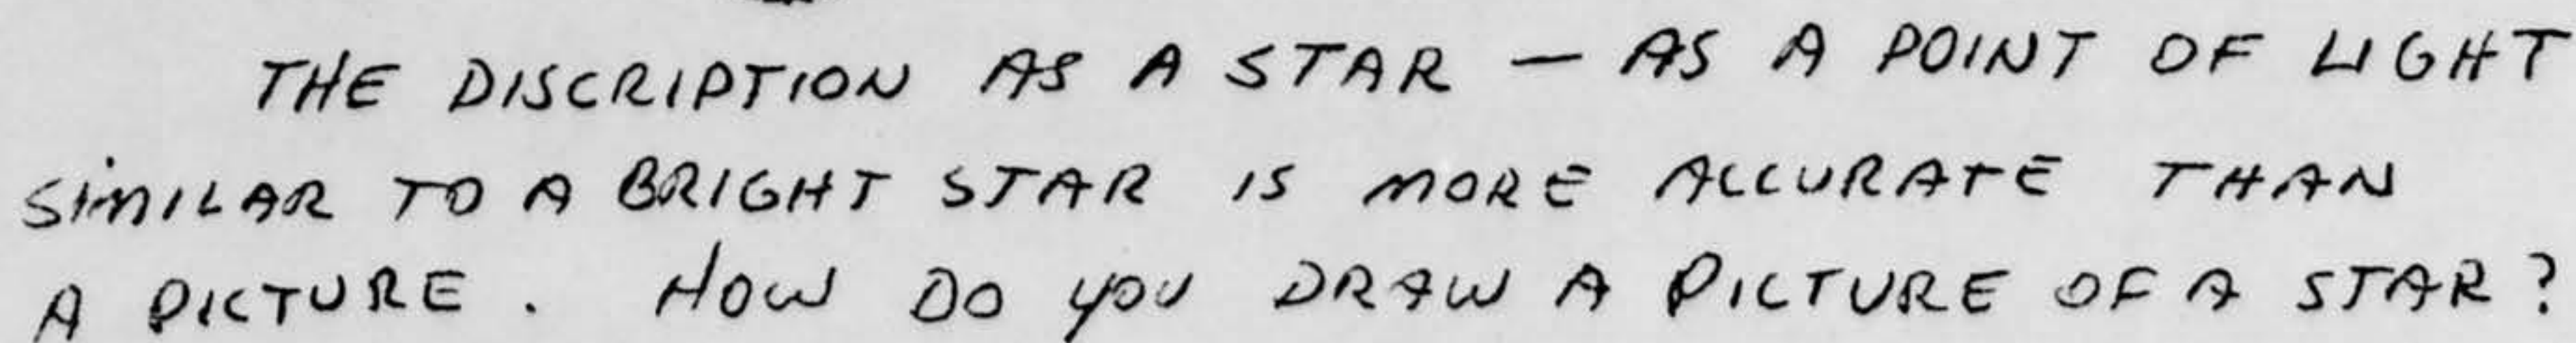 THE DISCRIPTION AS A STAR — AS A POINT OF LIGHT
SIMILAR TO A BRIGHT STAR IS MORE ACCURATE THAN
A PICTURE. HOW DO YOU DRAW A PICTURE OF A STAR?